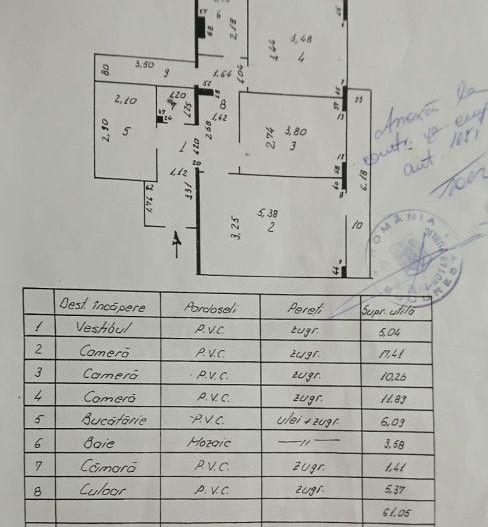 6
2,18
3,48
4
3,44
1,64
1,04
3,50
9
80
2,10
5
2,90
1,20
7
1,75
8
1,42
2,68
2,74
3,80
3
1
1,12
5,38
2
3,25
1,31
6,18
10
Anexă la
contr.
aut.
ROMÂNIA
Dest. încăpere Pardoseli Pereți Supr. utilă
1 Vestibul P.V.C. zugr. 5,04
2 Cameră P.V.C. zugr. 17,41
3 Cameră P.V.C. zugr. 10,26
4 Cameră P.V.C. zugr. 11,83
5 Bucătărie P.V.C. ulei + zugr. 6,09
6 Baie Mozaic —"— 3,58
7 Cămară P.V.C. zugr. 1,41
8 Culoar P.V.C. zugr. 5,37
61,05